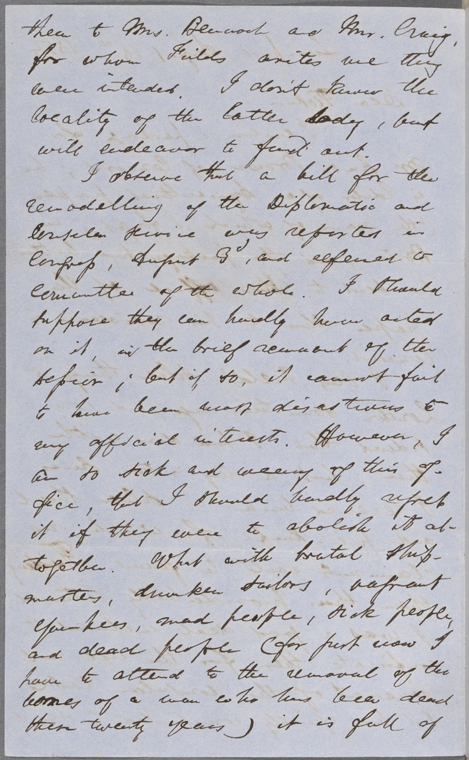 them to Mrs. Bennoch and Mrs. Craig,
for whom Fields writes me they
were intended. I don't know the
locality of the latter lady, but
will endeavor to find out.
I observe that a bill for the
remodelling of the Diplomatic and
Consular service was reported in
Congress, August 3d, and referred to
Committee of the whole. I should
suppose they can hardly have acted
on it, in the brief remnant of the
session; but if so, it cannot fail
to have been most disastrous to
my official interests. However, I
am so sick and weary of this of-
fice, that I should hardly regret
it if they were to abolish it al-
together. What with brutal ship-
masters, drunken sailors, vagrant
Yankees, mad people, sick people,
and dead people (for just now I
have to attend to the removal of the
bones of a man who has been dead
these twenty years) it is full of